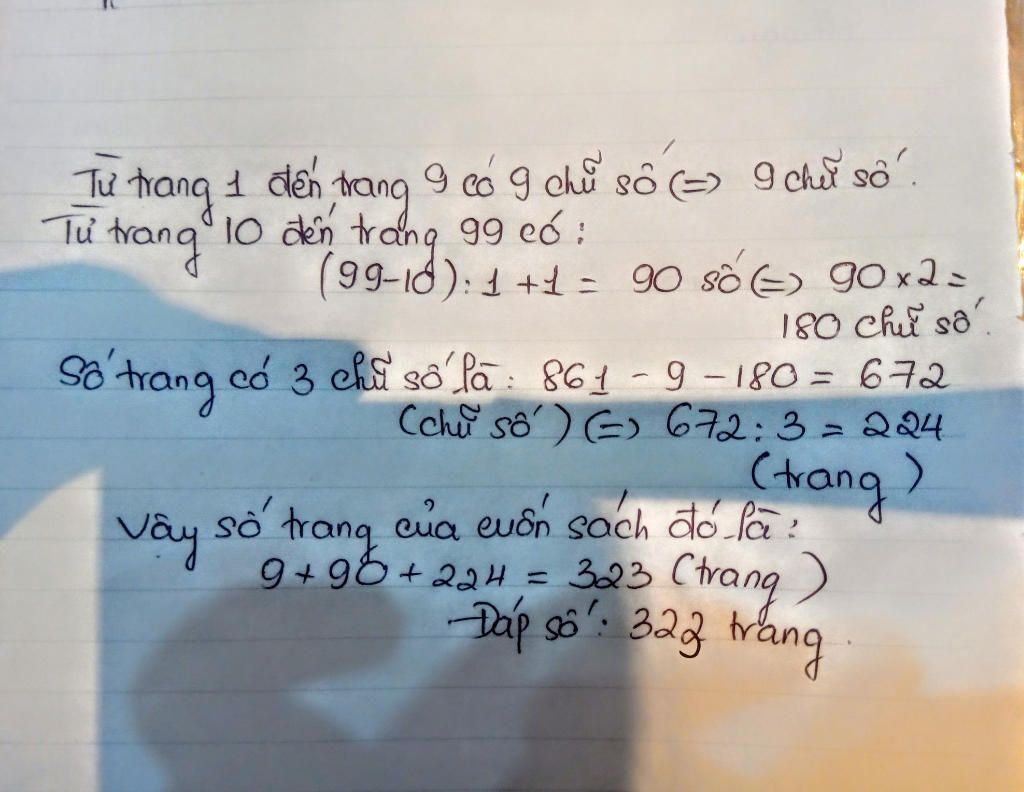 Từ trang 1 đến trang 9 có 9 chữ số (=) 9 chữ số.
Từ trang 10 đến trang 99 có :
(99-10) : 1 + 1 = 90 số (=) 90 x 2 =
180 chữ số.
Số trang có 3 chữ số là : 861 - 9 - 180 = 672
(chữ số) (=) 672 : 3 = 224
(trang)
Vậy số trang của cuốn sách đó là :
9 + 90 + 224 = 323 (trang)
Đáp số : 323 trang.